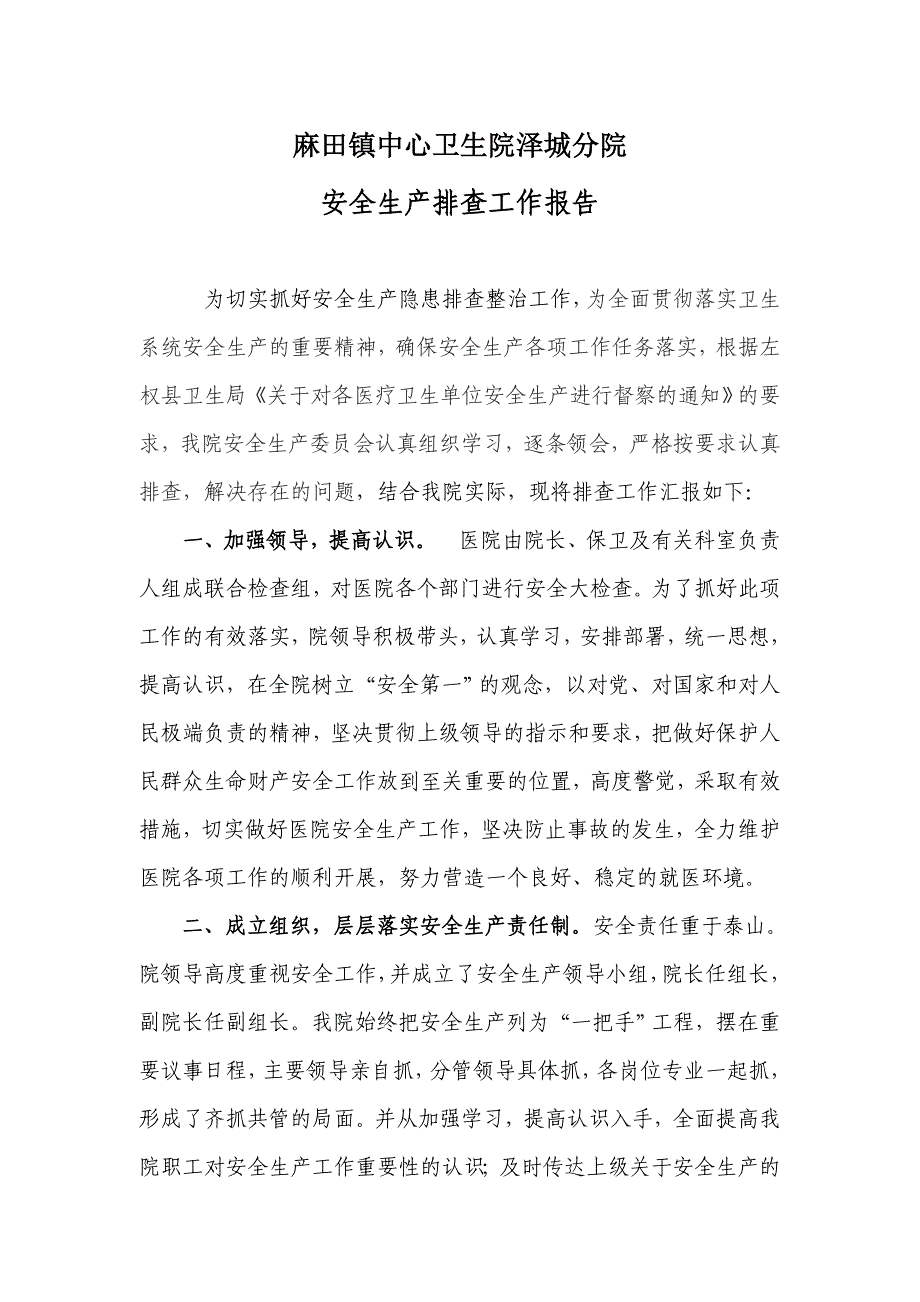 麻田镇中心卫生院泽城分院
安全生产排查工作报告
为切实抓好安全生产隐患排查整治工作，为全面贯彻落实卫生
系统安全生产的重要精神，确保安全生产各项工作任务落实，根据左
权县卫生局《关于对各医疗卫生单位安全生产进行督察的通知》的要
求，我院安全生产委员会认真组织学习，逐条领会，严格按要求认真
排查，解决存在的问题，结合我院实际，现将排查工作汇报如下：
一、加强领导，提高认识。 医院由院长、保卫及有关科室负责
人组成联合检查组，对医院各个部门进行安全大检查。为了抓好此项
工作的有效落实，院领导积极带头，认真学习，安排部署，统一思想，
提高认识，在全院树立“安全第一”的观念，以对党、对国家和对人
民极端负责的精神，坚决贯彻上级领导的指示和要求，把做好保护人
民群众生命财产安全工作放到至关重要的位置，高度警觉，采取有效
措施，切实做好医院安全生产工作，坚决防止事故的发生，全力维护
医院各项工作的顺利开展，努力营造一个良好、稳定的就医环境。
二、成立组织，层层落实安全生产责任制。安全责任重于泰山。
院领导高度重视安全工作，并成立了安全生产领导小组，院长任组长，
副院长任副组长。我院始终把安全生产列为“一把手”工程，摆在重
要议事日程，主要领导亲自抓，分管领导具体抓，各岗位专业一起抓，
形成了齐抓共管的局面。并从加强学习，提高认识入手，全面提高我
院职工对安全生产工作重要性的认识；及时传达上级关于安全生产的